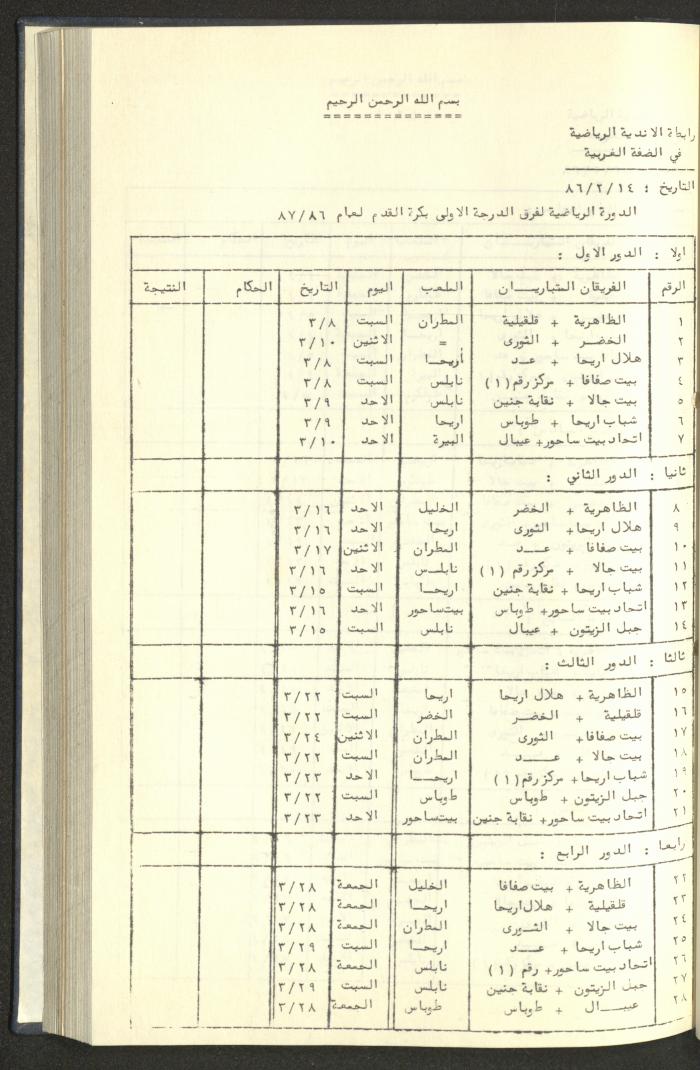 بسم الله الرحمن الرحيم
==============
رابطة الاندية الرياضية
في الضفة الغربية
التاريخ : ٨٦/٢/١٤
الدورة الرياضية لفرق الدرجة الاولى بكرة القدم لعام ٨٧/٨٦
اولا : الدور الاول :
الرقم الفريقان المتباريـــان الملعب اليوم التاريخ الحكام النتيجة
١ الظاهرية + قلقيلية المطران السبت ٣/٨
٢ الخضـــر + الثورى = الاثنين ٣/١٠
٣ هلال اريحا + عـــد أريحـــا السبت ٣/٨
٤ بيت صفافا + مركز رقم (١) نابلس السبت ٣/٨
٥ بيت جالا + نقابة جنين نابلس الاحد ٣/٩
٦ شباب اريحا + طوباس اريحا الاحد ٣/٩
٧ اتحاد بيت ساحور + عيبال البيرة الاحد ٣/١٠
ثانيا : الدور الثاني :
٨ الظاهرية + الخضر الخليل الاحد ٣/١٦
٩ هلال اريحا + الثورى اريحا الاحد ٣/١٦
١٠ بيت صفافا + عـــد المطران الاثنين ٣/١٧
١١ بيت جالا + مركز رقم (١) نابلــس الاحد ٣/١٦
١٢ شباب اريحا + نقابة جنين اريحـــا السبت ٣/١٥
١٣ اتحاد بيت ساحور + طوباس بيت ساحور الاحد ٣/١٦
١٤ جبل الزيتون + عيبال نابلس السبت ٣/١٥
ثالثا : الدور الثالث :
١٥ الظاهرية + هلال اريحا اريحا السبت ٣/٢٢
١٦ قلقيلية + الخضـــر الخضر السبت ٣/٢٢
١٧ بيت صفافا + الثورى المطران الاثنين ٣/٢٤
١٨ بيت جالا + عـــــد المطران السبت ٣/٢٢
١٩ شباب اريحا + مركز رقم (١) اريحـــا الاحد ٣/٢٣
٢٠ جبل الزيتون + طوباس طوباس السبت ٣/٢٢
٢١ اتحاد بيت ساحور + نقابة جنين بيت ساحور الاحد ٣/٢٣
رابعا : الدور الرابع :
٢٢ الظاهرية + بيت صفافا الخليل الجمعة ٣/٢٨
٢٣ قلقيلية + هلال اريحا اريحـــا الجمعة ٣/٢٨
٢٤ بيت جالا + الثــورى المطران الجمعة ٣/٢٨
٢٥ شباب اريحا + عـــد اريحـــا السبت ٣/٢٩
٢٦ اتحاد بيت ساحور + رقم (١) نابلس الجمعة ٣/٢٨
٢٧ جبل الزيتون + نقابة جنين نابلس السبت ٣/٢٩
٢٨ عيبـــــال + طوباس طوباس الجمعة ٣/٢٨